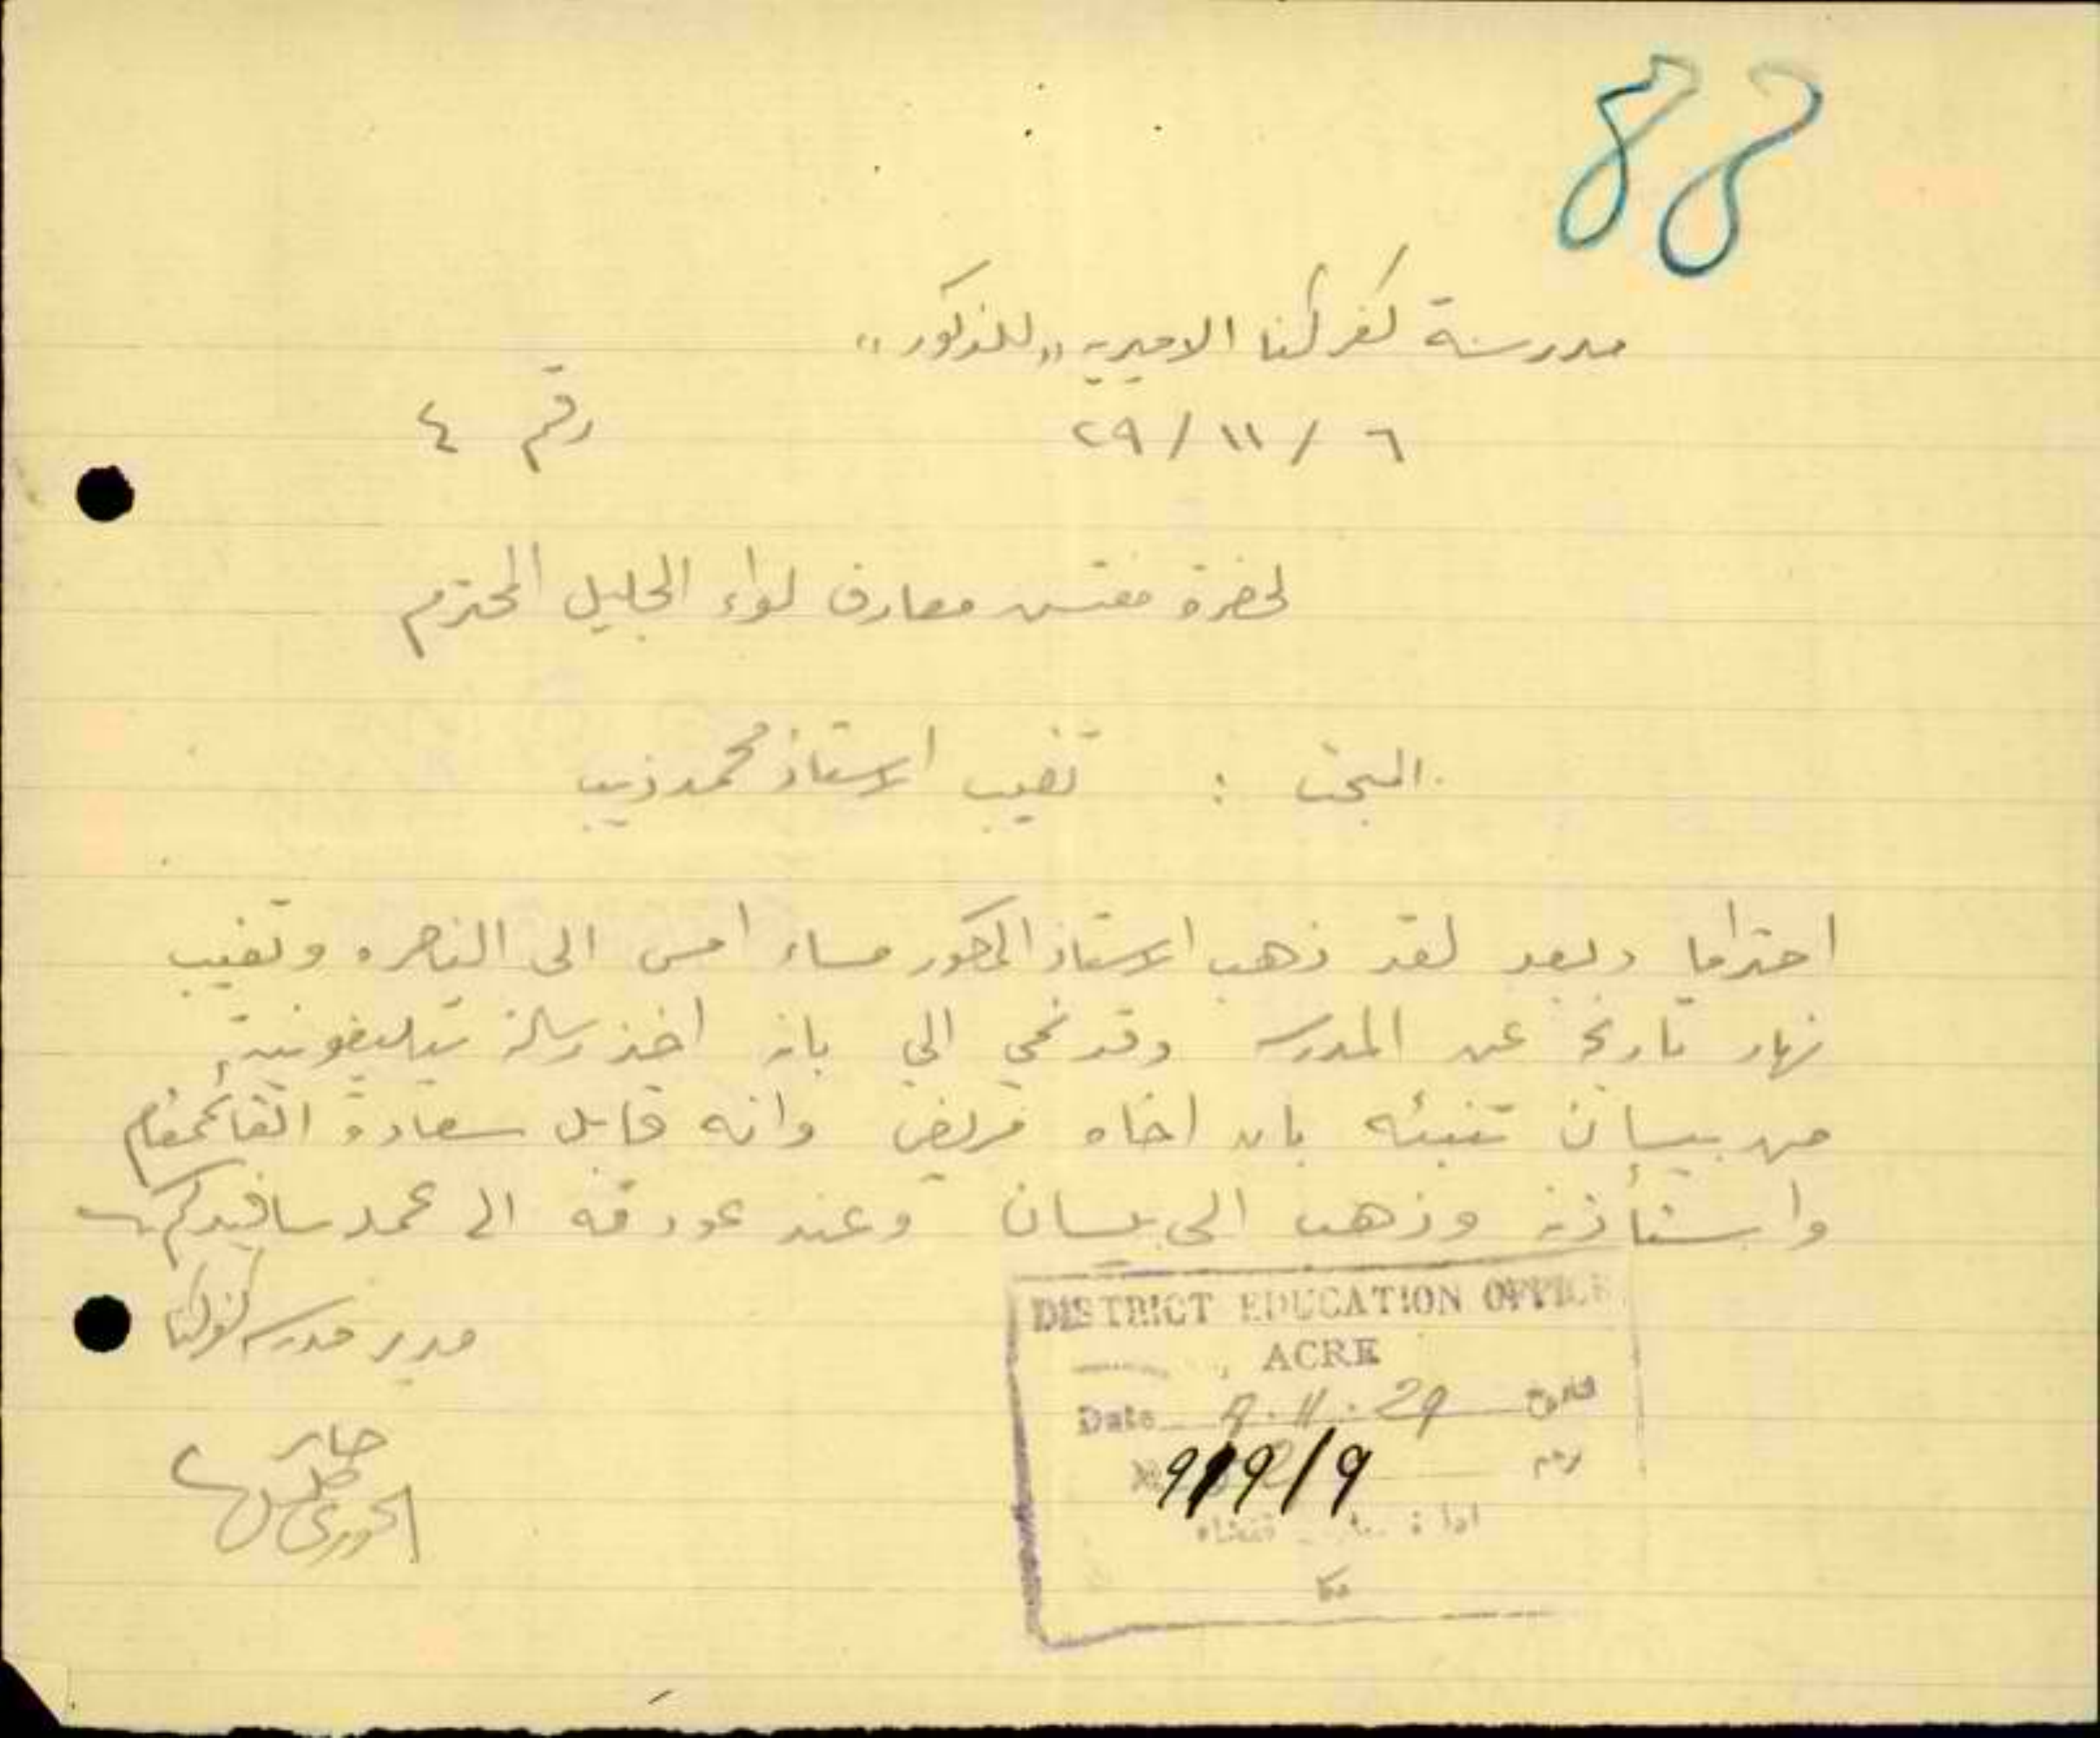 88
مدرسة كفركنا الاميريه "للذكور"
٦ / ١١ / ٢٩ رقم ٤
لحضرة مفتش معارف لواء الجليل المحترم
المبحث : تغيب الاستاذ محمد ذيب
احتراما وبعد لقد ذهب الاستاذ المذكور مساء امس الى الناصره وتغيب
نهار تاريخه عن المدرسه وقد نمي الي بانه اخذ رسالة تيليفونية
من بيسان تنبئه بان اخاه مريض وانه قابل سعادة القائمقام
واستأذنه وذهب الى بيسان وعند عودته الى عمله سافيدكم
مدير مدرسه كفركنا
الخوري
DISTRICT EDUCATION OFFICE
ACRE
Date 8.11.29 التاريخ
No 9/9/9 رقم
عكا